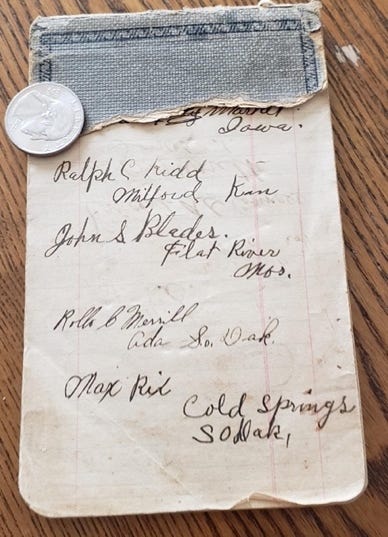 Market
Iowa.
Ralph C Kidd
Milford Kan
John S Blades.
Flat River
Mos.
Rollo C Merrill
Ada So. Dak.
Max Rix
Cold Springs
SODak,